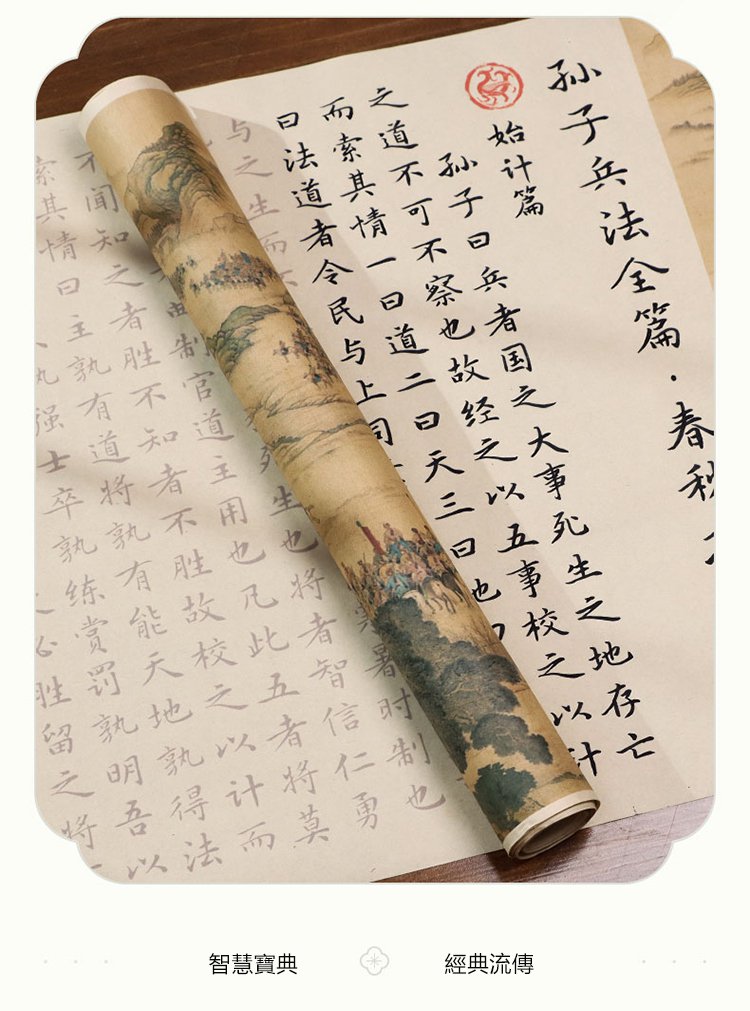 孙子兵法全篇·春秋
始计篇
孙子曰兵者国之大事死生之地存亡
之道不可不察也故经之以五事校之以计
而索其情一曰道二曰天三曰地
曰法道者令民与上同
与之生而
暑时制也
死生也将者智信仁勇
曲制官道主用也凡此五者将莫
不闻知之者胜不知者不胜故校之以计而
索其情曰主孰有道将孰有能天地孰得法
强士卒孰练赏罚孰明吾以
必胜留之将
智慧寶典
經典流傳